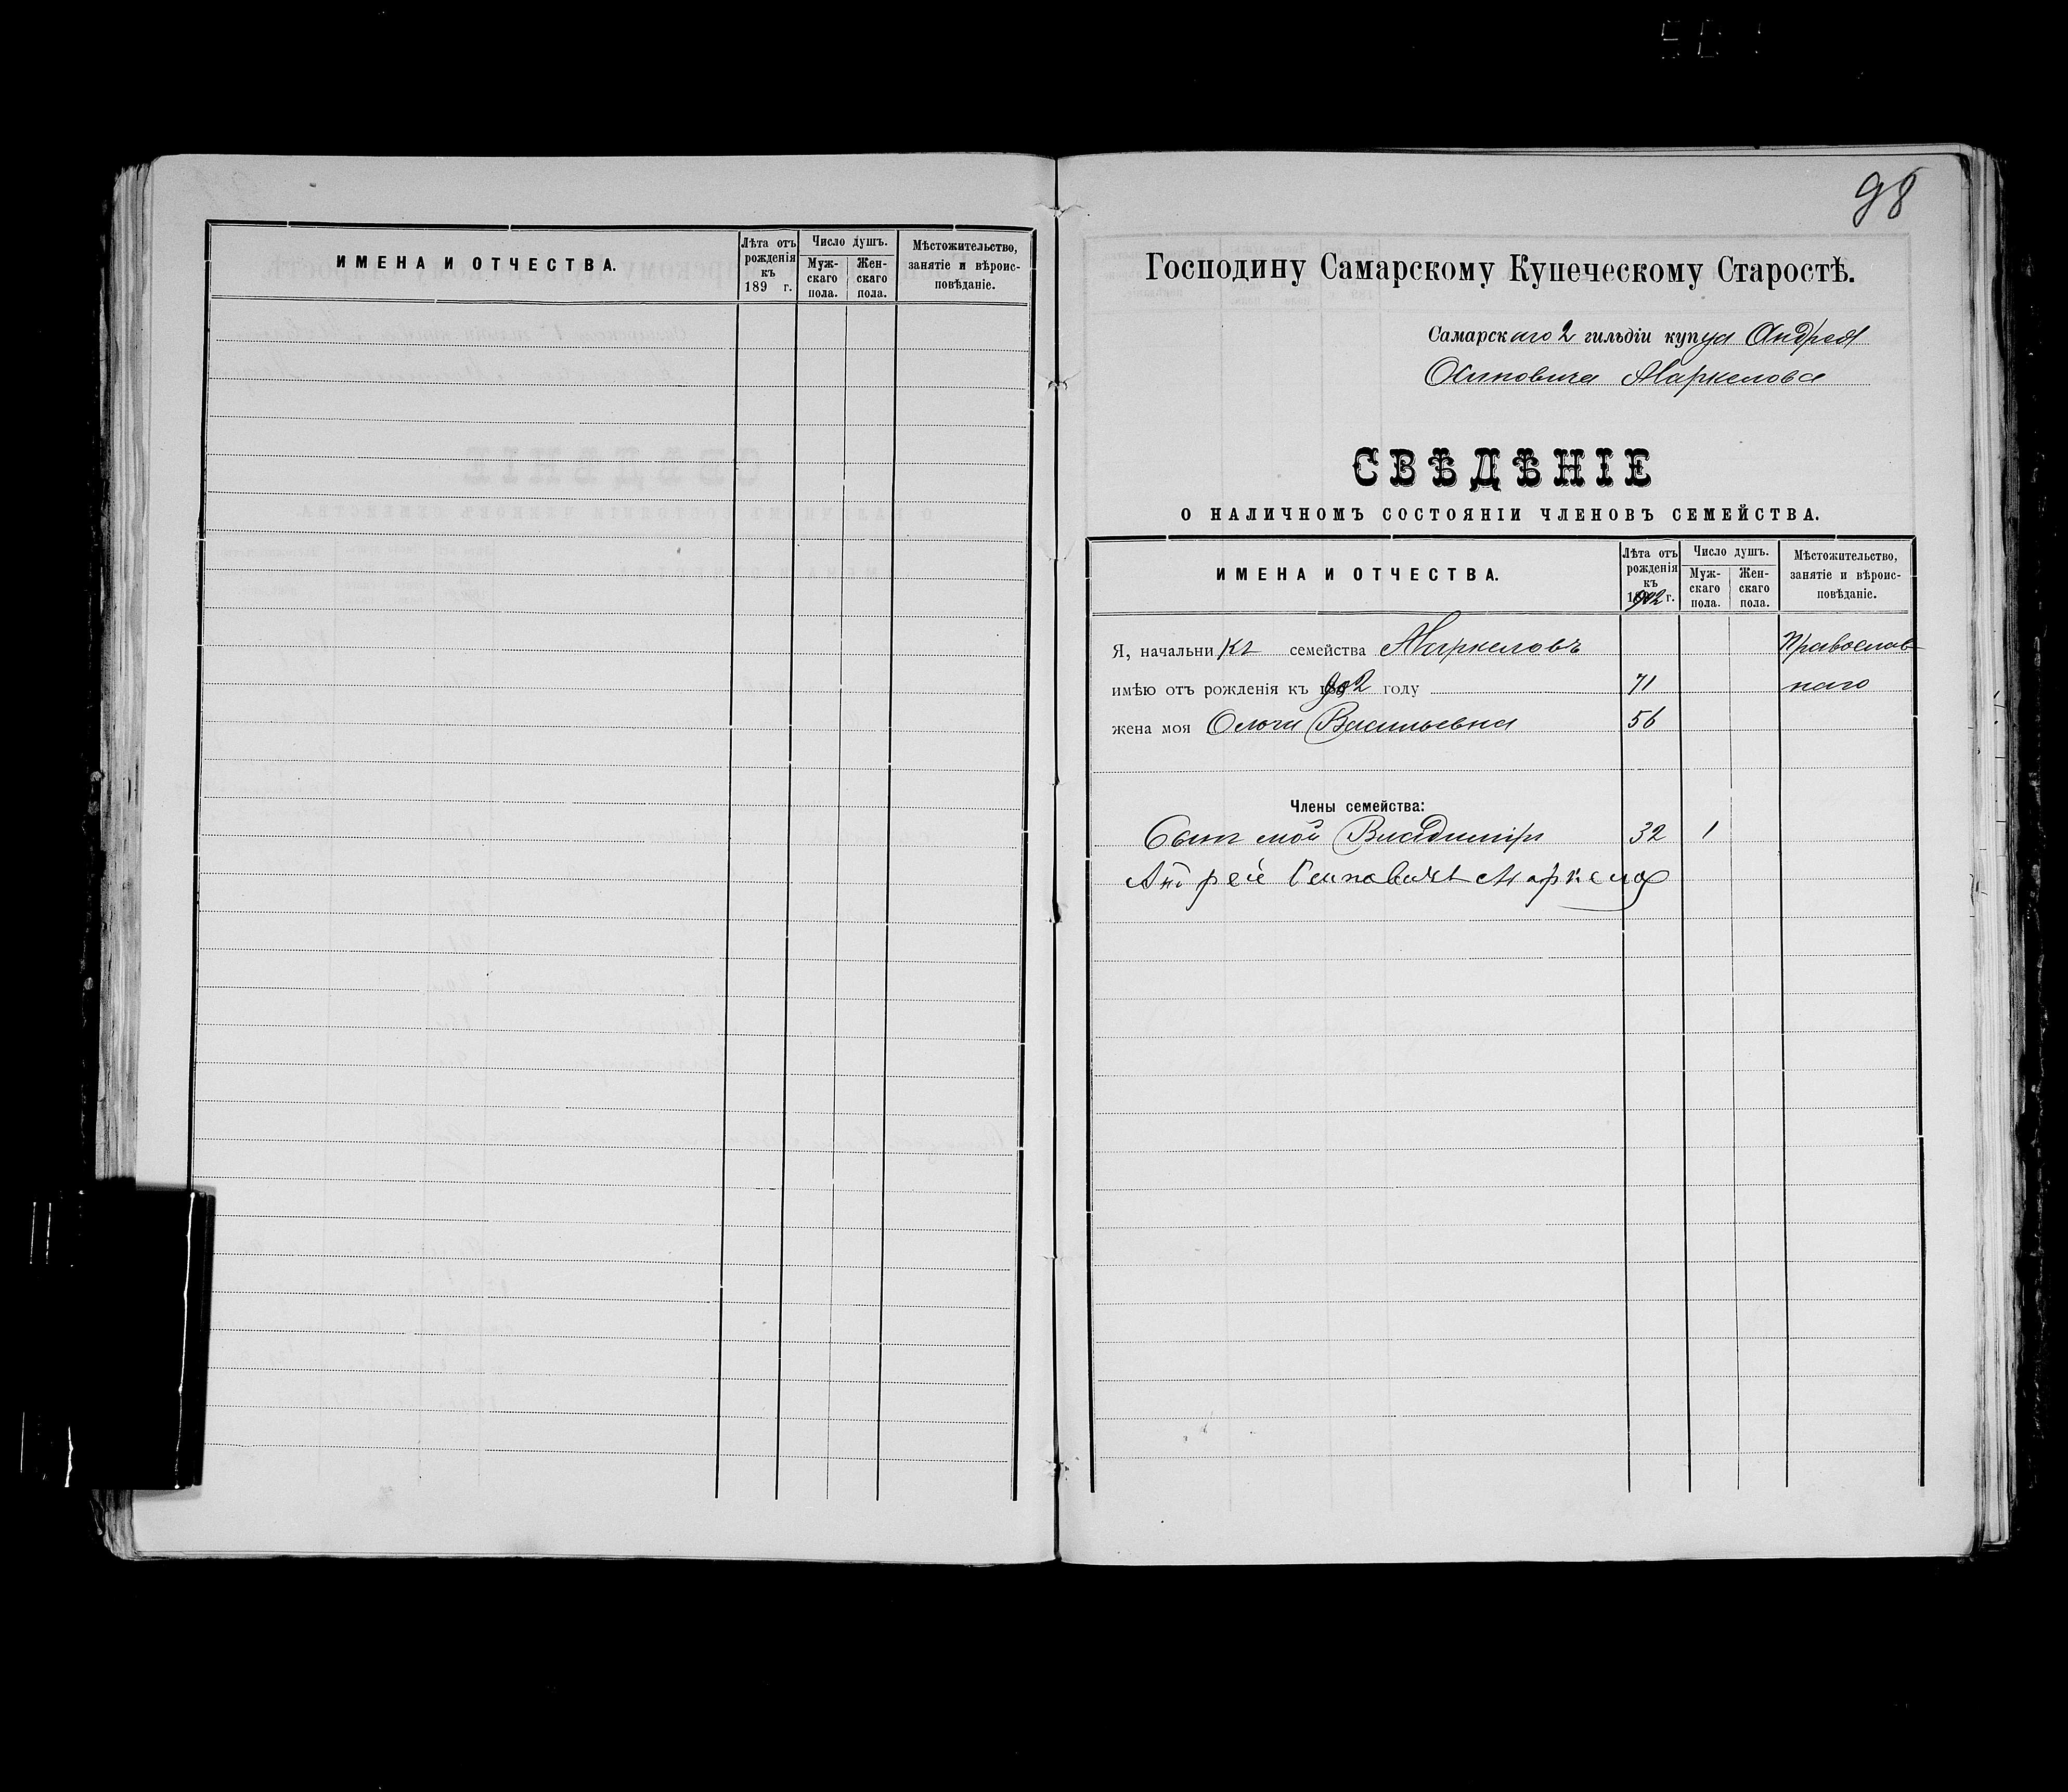 ИМЕНА И ОТЧЕСТВА.
Лѣта отъ рожденія къ 189 г.
Число душъ.
Мужскаго пола.
Женскаго пола.
Мѣстожительство, занятіе и вѣроисповѣданіе.
98
Господину Самарскому Купеческому Старостѣ.
Самарскаго 2 гильдіи купца Андрея
Осиповича Маркелова
СВѢДѢНІЕ
О НАЛИЧНОМЪ СОСТОЯНІИ ЧЛЕНОВЪ СЕМЕЙСТВА.
ИМЕНА И ОТЧЕСТВА.
Лѣта отъ рожденія къ 1902 г.
Число душъ.
Мужскаго пола.
Женскаго пола.
Мѣстожительство, занятіе и вѣроисповѣданіе.
Я, начальникъ семейства Маркеловъ Православ-
имѣю отъ рожденія къ 1902 году 71 наго
жена моя Ольга Васильевна 56
Члены семейства:
Сынъ мой Владиміръ 32 1
Андрей Осиповичъ Маркелов